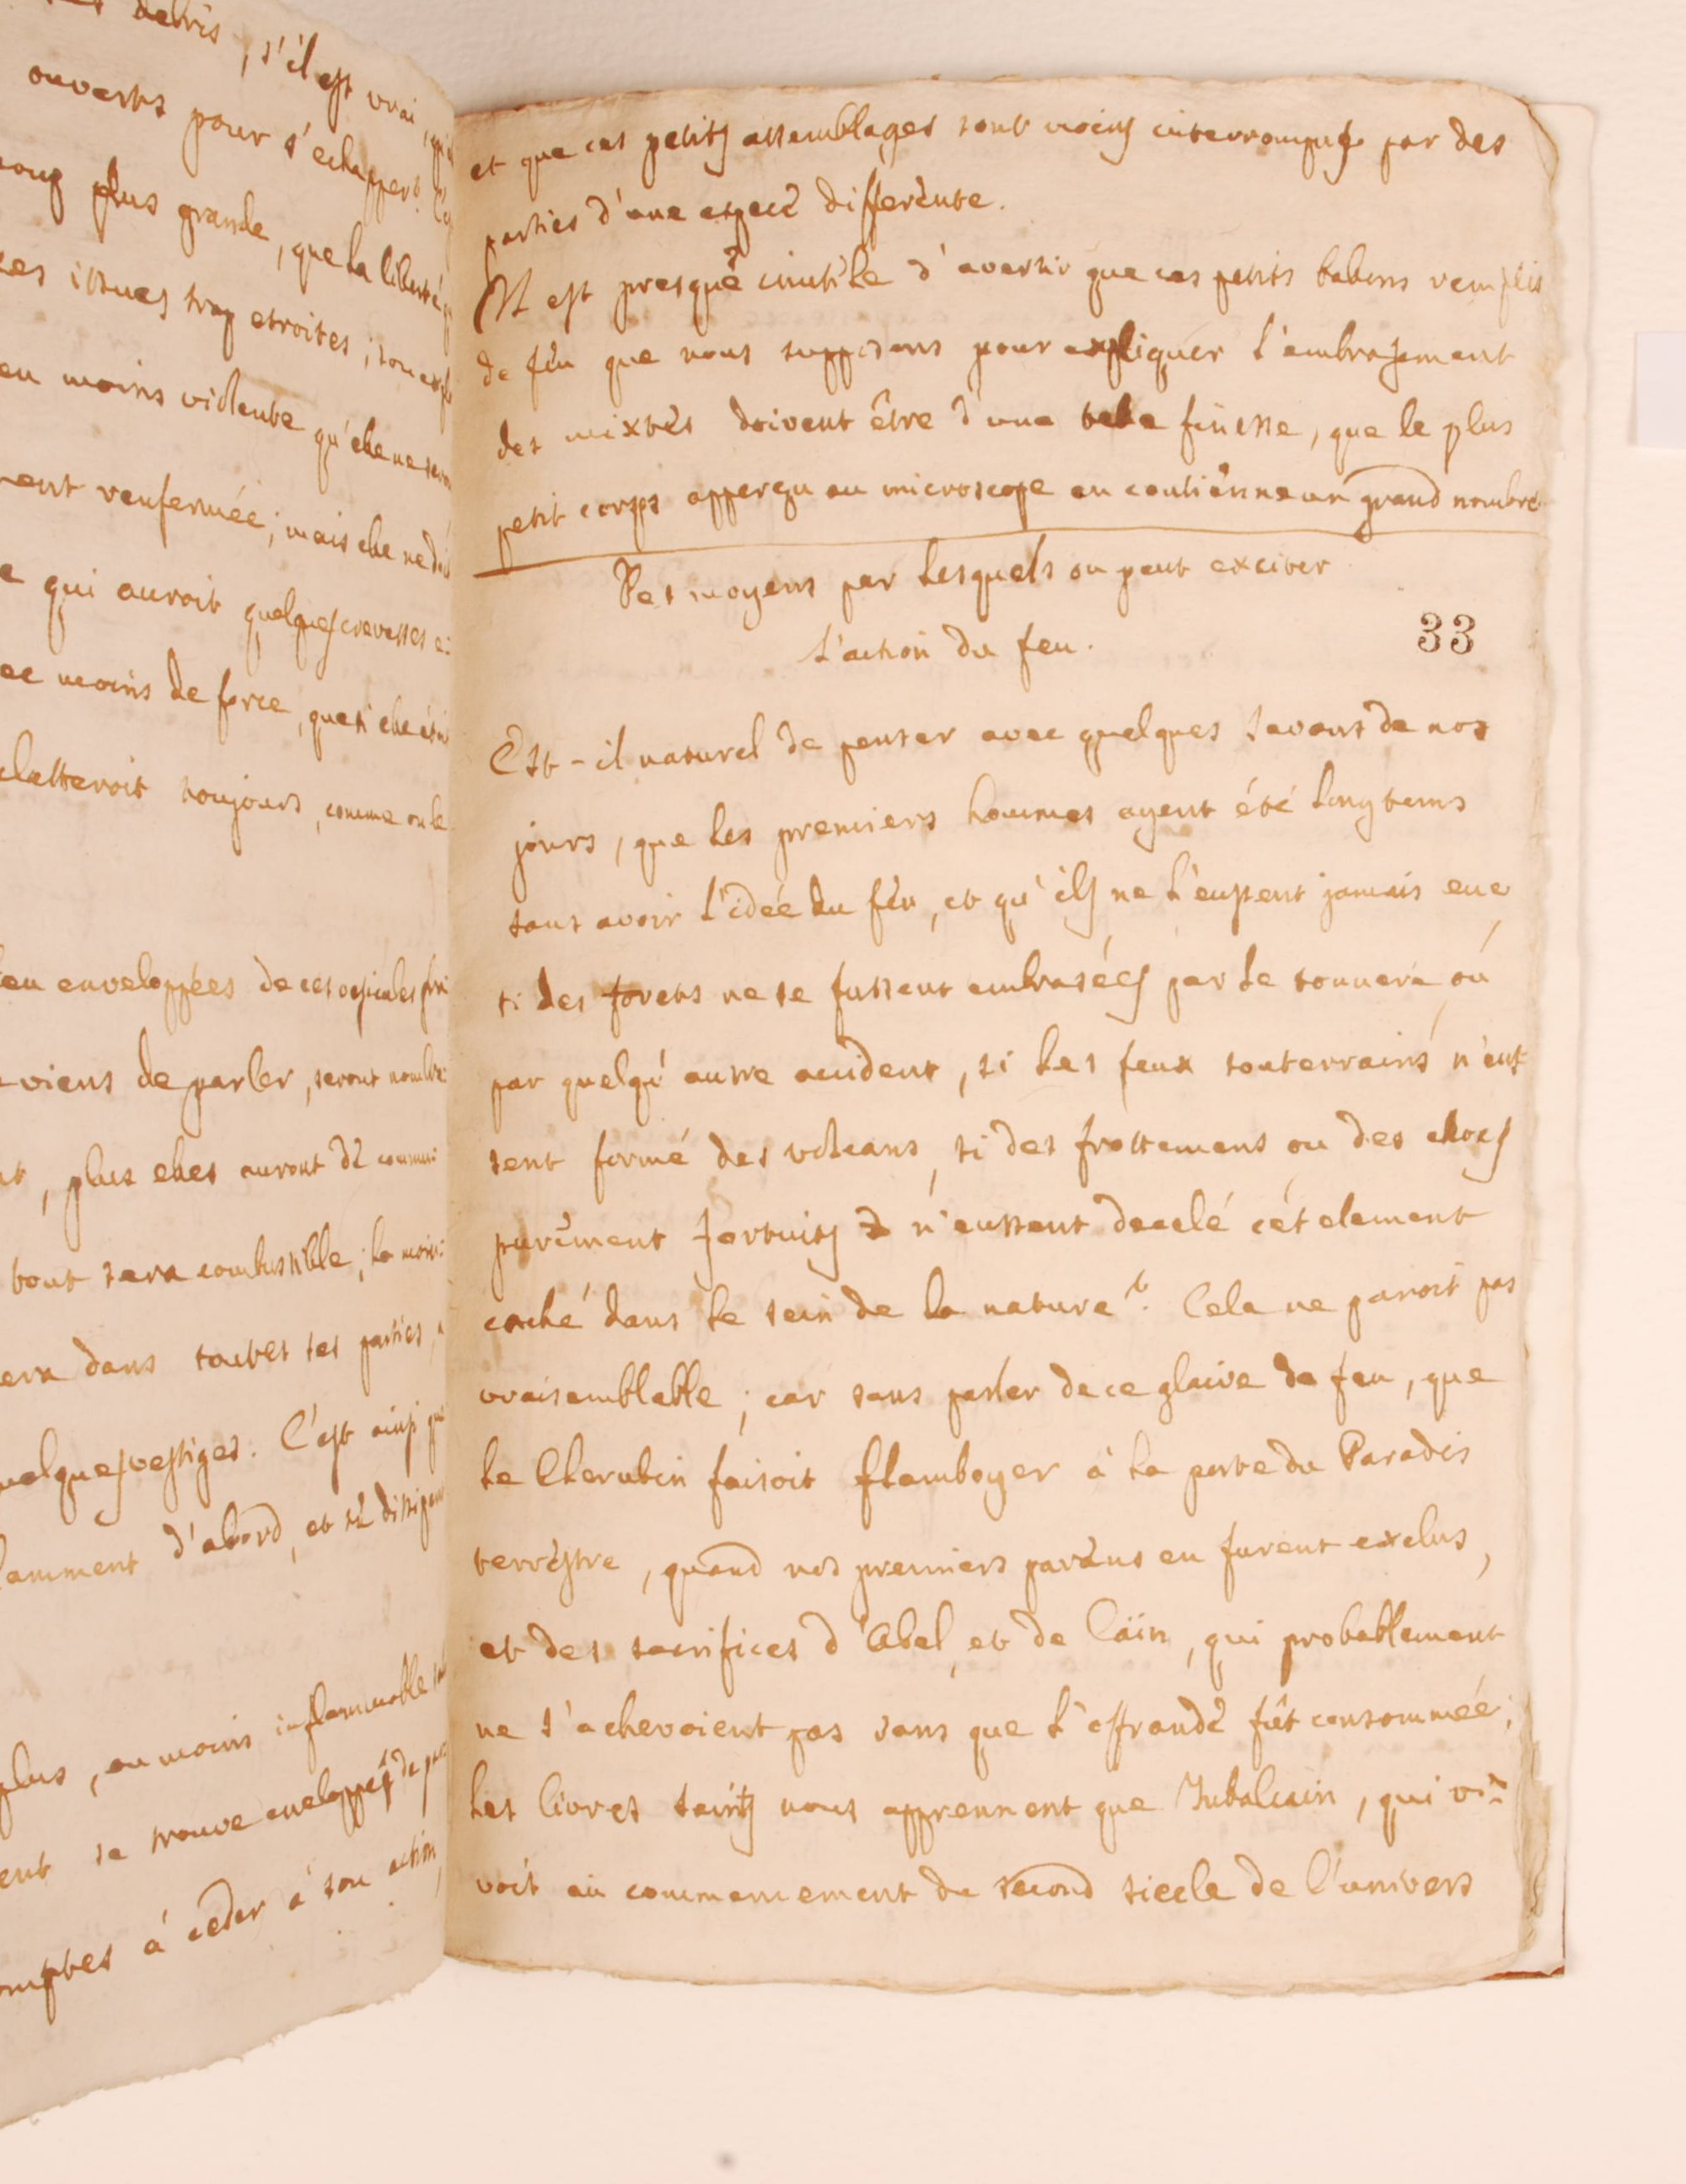 debris, s'il est vrai, qu'
ouverts pour s'echapper.
plus grande, que la liberté
issues trop etroites; son
moins violente qu'elle ne
renfermée; mais elle ne
qui auroit quelques crevasses
moins de force, que si elle
toujours, comme on le
enveloppées de ces vesicules
viens de parler, seront
, plus elles auront de
tout sera combustible; la
dans toutes ses parties,
vestiges. C'est ainsi que
d'abord, et se
plus, ou moins inflammable
se trouve enveloppés de
à ceder à son action,
et que ces petits assemblages sont moins interrompus par des
parties d'une espece differente.
Il est presque inutile d'avertir que ces petits balons remplis
de feu que nous supposons pour expliquer l'embrasement
des mixtes doivent être d'une telle finesse, que le plus
petit corps apperçu au microscope en contienne un grand nombre
Des moyens par lesquels on peut exciter
l'action du feu.
33
Est-il naturel de penser avec quelques savans de nos
jours, que les premiers hommes ayent été longtems
sans avoir l'idée du feu, et qu'ils ne l'eussent jamais eue,
si des forets ne se fussent embrasées par le tonnere, ou
par quelqu'autre accident, si les feux souterrains n'eus
sent formé des volcans, si des frottemens ou des chocs
purement fortuits n'eussent decelé cét element
caché dans le sein de la nature? Cela ne paroit pas
vraisemblable; car sans parler de ce glaive de feu, que
le Cherubin faisoit flamboyer à la porte du Paradis
terrestre, quand nos premiers parens en furent exclus,
et des sacrifices d'Abel, et de Caïn, qui probablement
ne s'achevoient pas sans que l'offrande fût consommée;
les livres saints nous apprennent que Jubalcain, qui vi-
voit au commencement du second siecle de l'univers